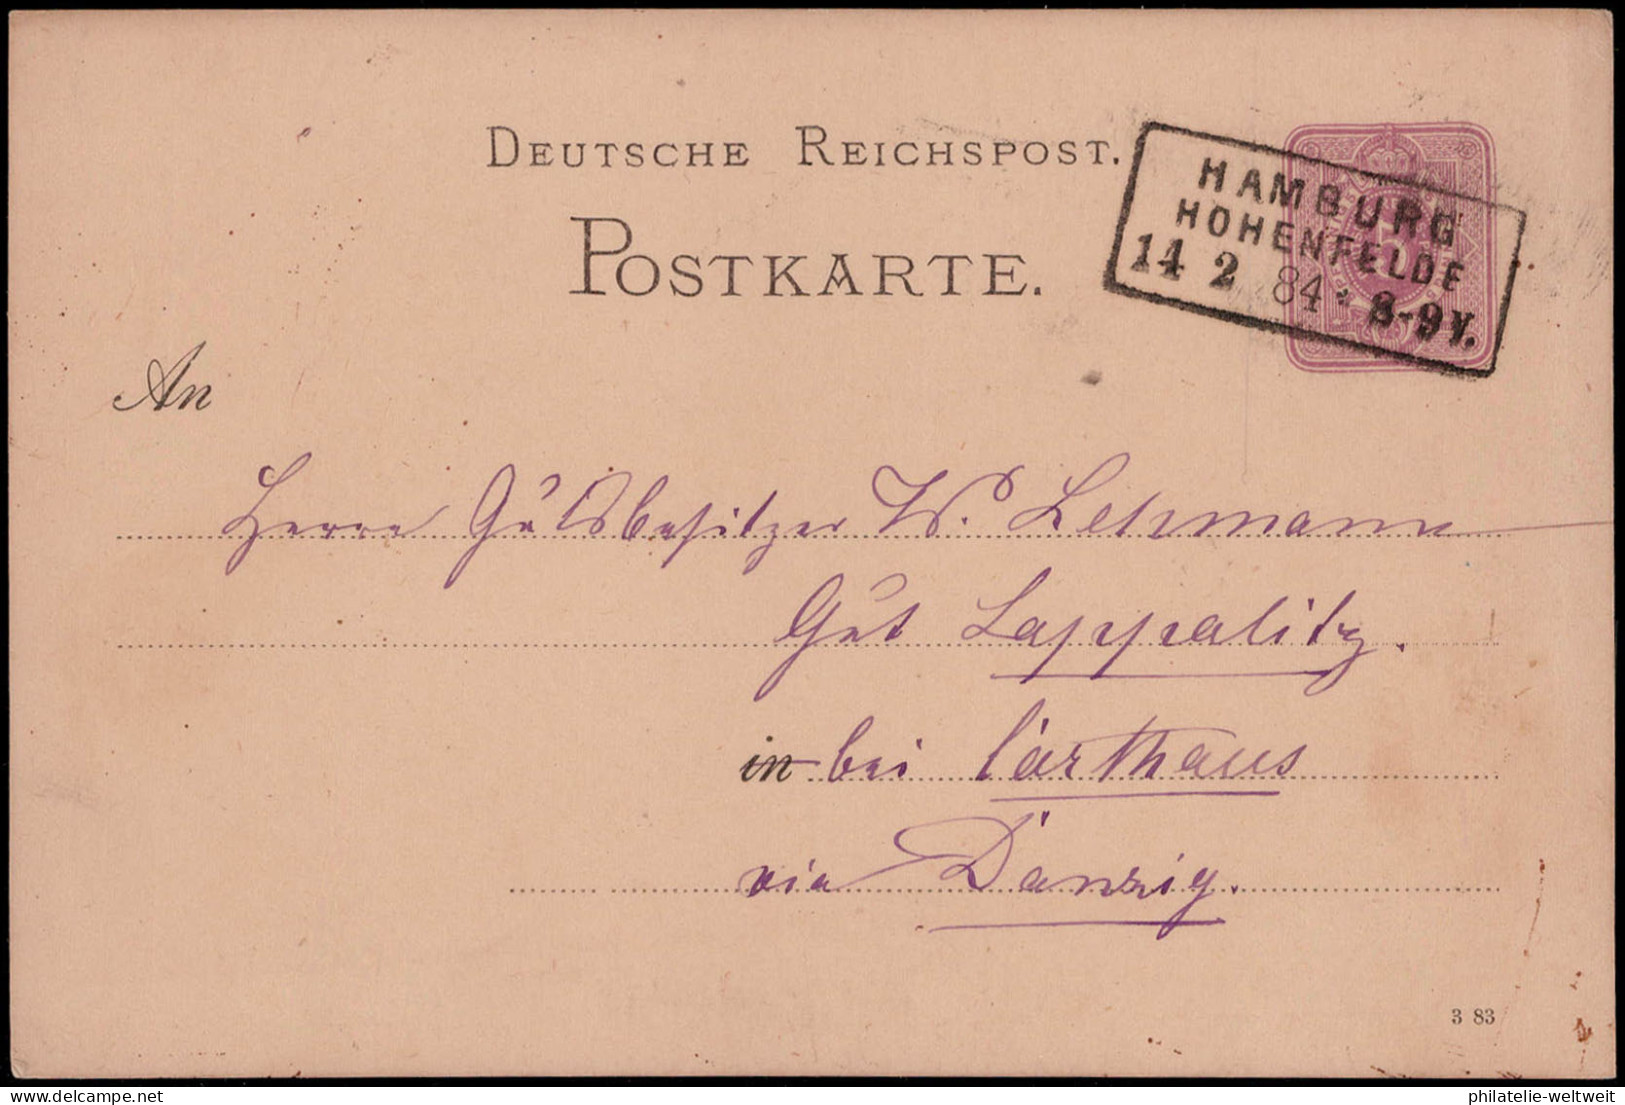 DEUTSCHE REICHSPOST.
POSTKARTE.
HAMBURG
HOHENFELDE
14 2 84 * 8-9 V.
An
Herrn Gutsbesitzer W. Lehmann
Gut Lappalitz.
in bei Carthaus
via Danzig.
3 83
philatelie-weltweit